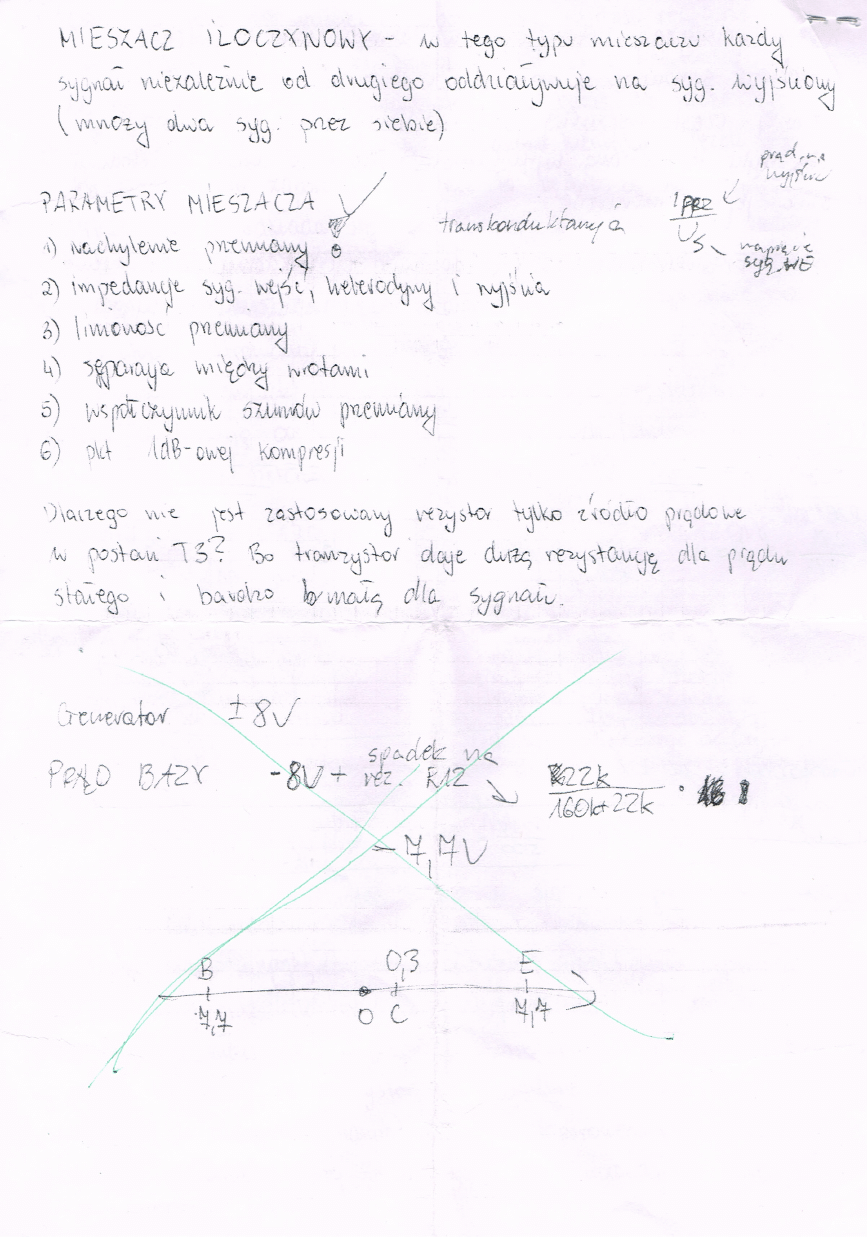 MIESZACZ ILOCZYNOWY - w tego typu mieszaczu każdy
sygnał niezależnie od drugiego oddziaływuje na syg. wyjściowy
(mnoży dwa syg. przez siebie)
prąd na
wyjściu
PARAMETRY MIESZACZA
transkonduktancja
IPRZ
US
napięcie
syg. WE
1) nachylenie przemiany
2) impedancje syg. wejść, heterodyny i wyjścia
3) liniowość przemiany
4) separacja między wrotami
5) współczynnik szumów przemiany
6) pkt 1dB-owej kompresji
Dlaczego nie jest zastosowany rezystor tylko źródło prądowe
w postaci T3? Bo tranzystor daje dużą rezystancję dla prądu
stałego i bardzo małą dla sygnału
Generator ± 8V
PRĄD BAZY -8V + spadek na
rez. R12
22k
160k+22k
- 7,7V
B 0,3 E
-7,7 0 C 7,7